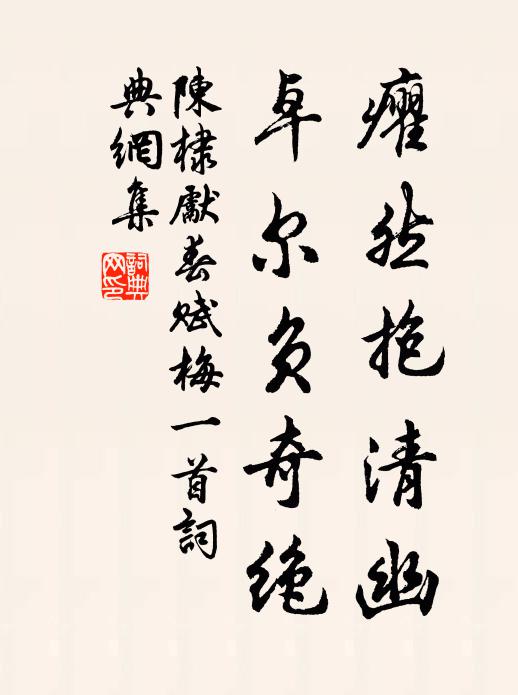 癯然抱清幽
卓尔负奇绝
陳棣獻春赋梅一首詞
典網集
詞典
网印